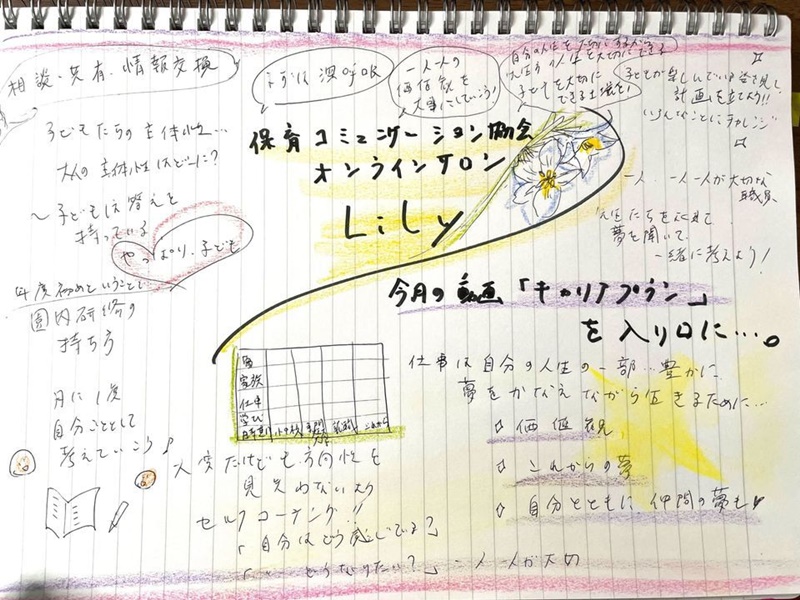 相談・共有・情報交換
まずは深呼吸
一人一人の
価値観を
大事にしていこう!
自分の人生を大切にする人は
人の人生を大切にできる
子どもを大切に
できる土壌を!
子どもが楽しんでいる姿を見て
計画を立てよう!!
いろんなことにチャレンジ
子どもたちの主体性…
大人の主体性はどこに?
〜子どもは答えを
持っている
やっぱり、子ども
保育コミュニケーション協会
オンラインサロン
Lily
一人一人が大切な
職員
先生たちを込めて
夢を聞いて
一緒に考えよう!
年度初めということで
園内研修の
持ち方
月に1度
自分ごととして
考えていこう♪
今月の動画「キャリアプラン」
を入り口に…。
家族
仕事
学び
これから
仕事は自分の人生の一部…豊かに
夢をかなえながら生きるために…
価値観
これからの夢
自分とともに仲間の夢も
大変だけども方向性を
見失わないよう
セルフコーチング!!
「自分はどう感じている?」
「〃 どうなりたい?」 一人一人が大切